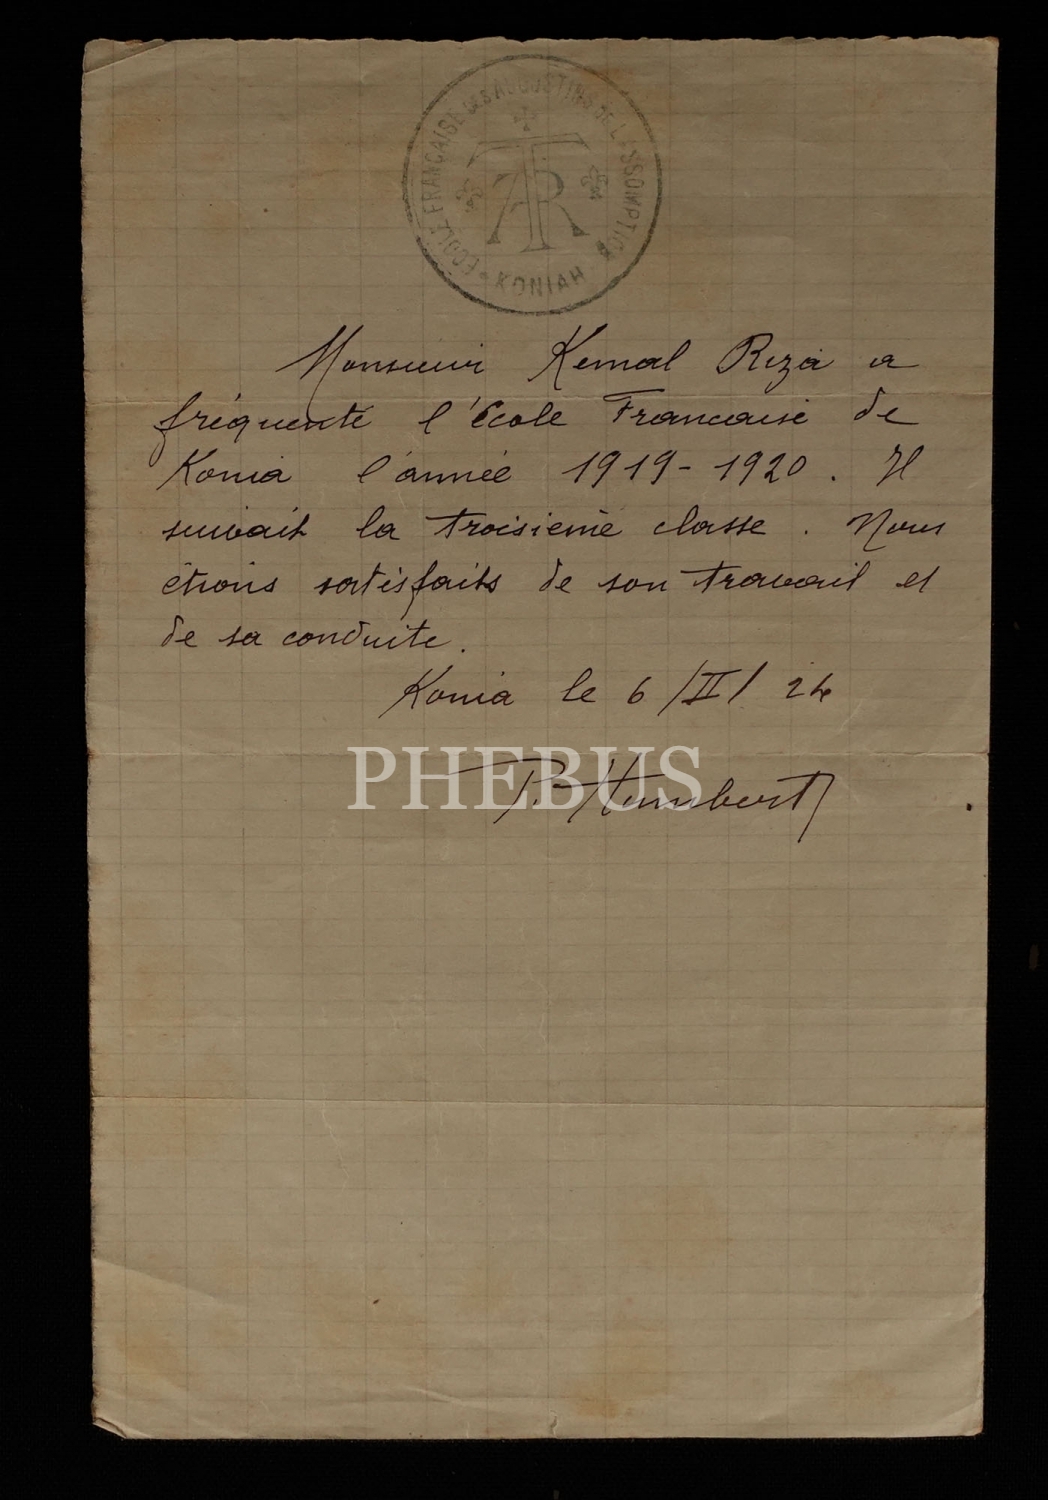 ECOLE FRANÇAISE DES AUGUSTINS DE L'ASSOMPTION
KONIAH
Monsieur Kemal Riza a
fréquenté l'école Francaise de
Konia l'année 1919-1920. Il
suivait la troisième classe. Nous
étions satisfaits de son travail et
de sa conduite.
Konia le 6/II/24
P. Humbert
PHEBUS